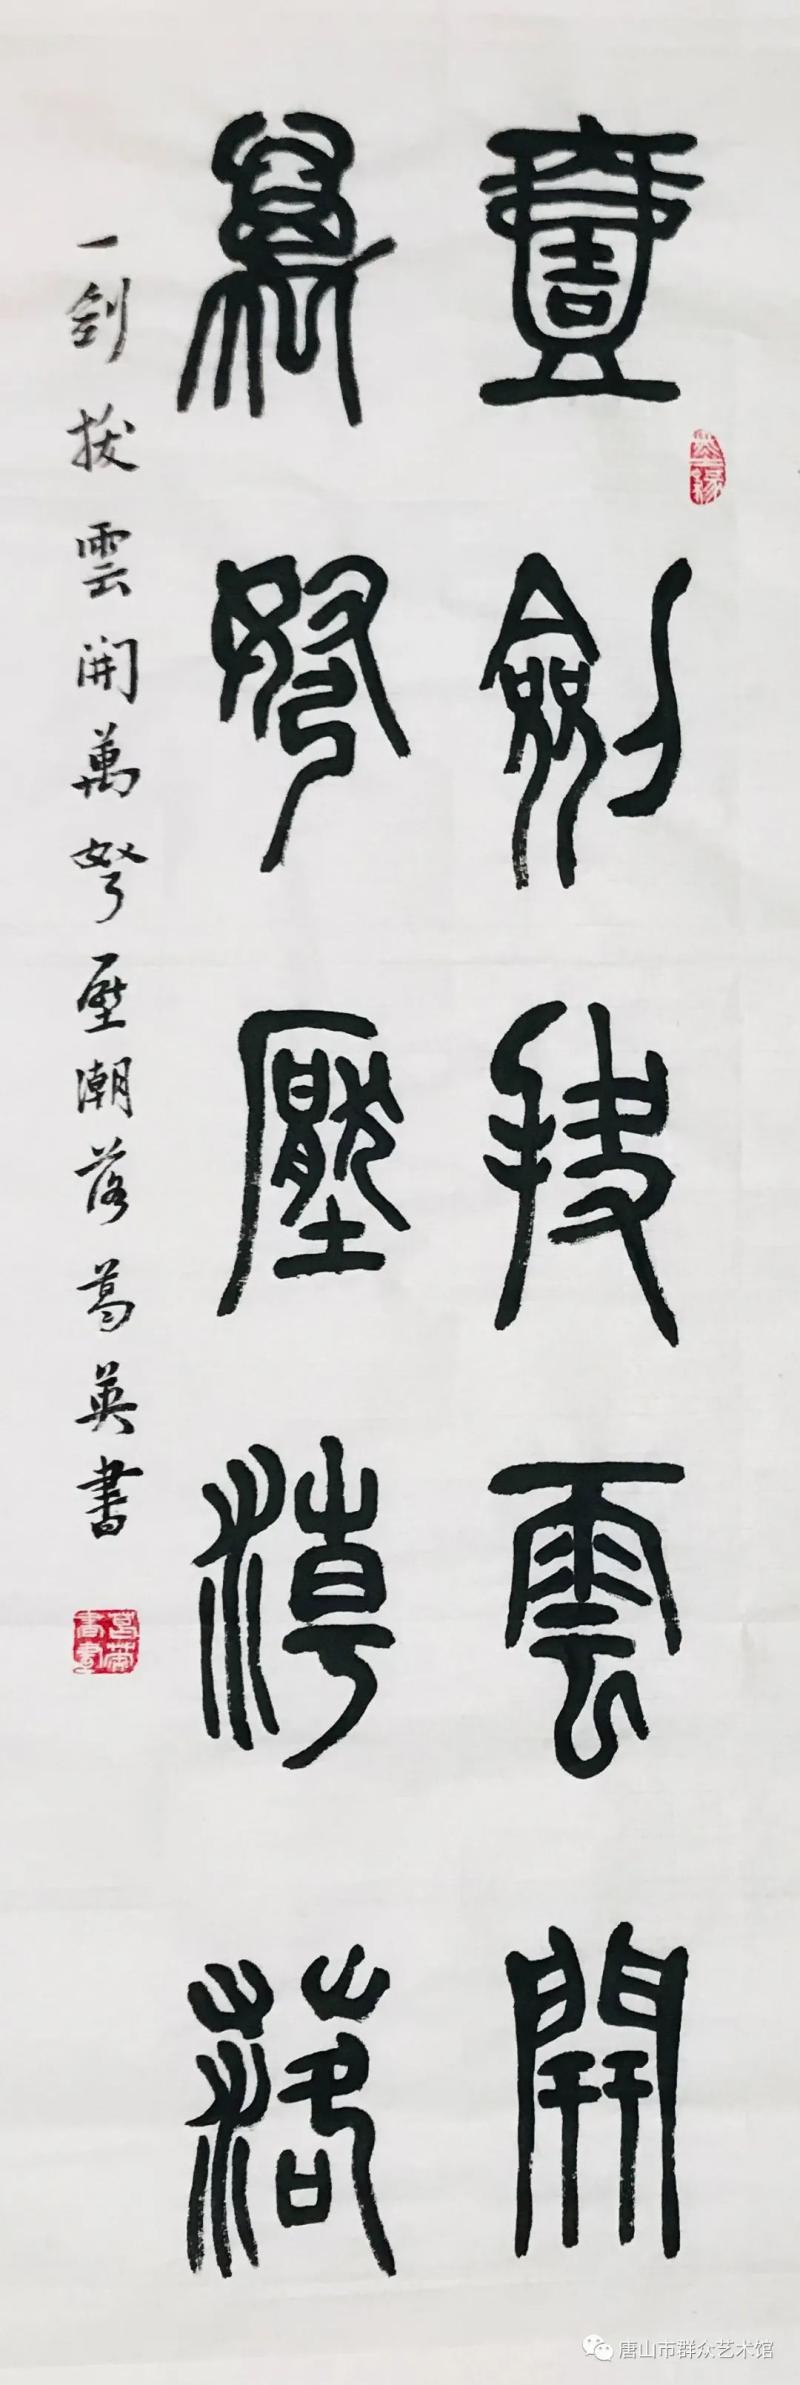 壹劍拔雲開
萬弩壓潮落
一劍拔雲開萬弩壓潮落葛英書
葛英書畫
唐山市群众艺术馆